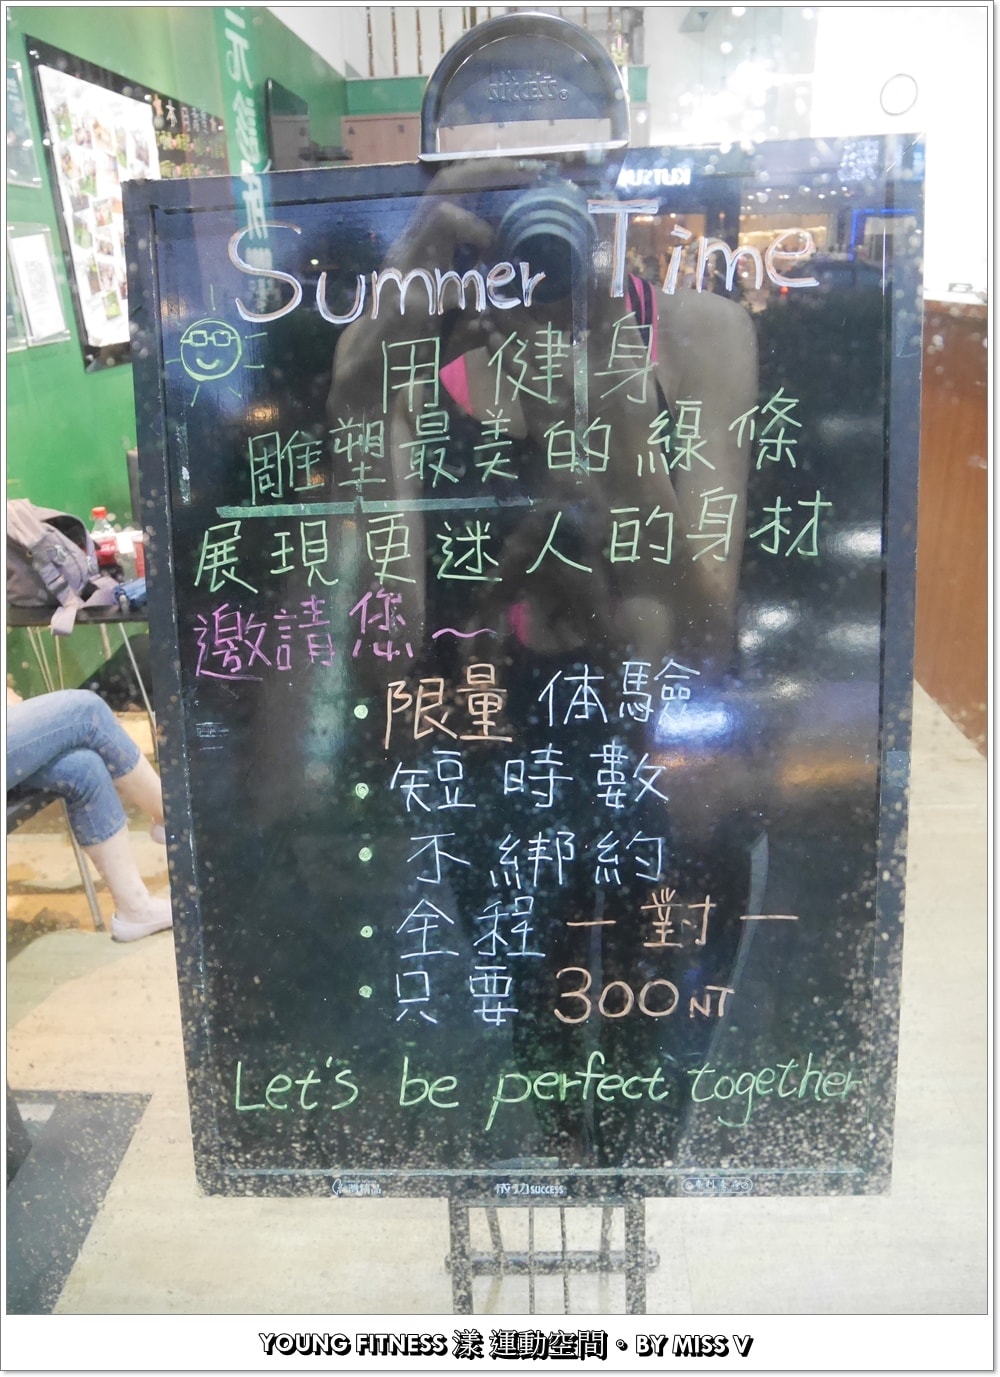 Summer Time
用健身
雕塑最美的線條
展現更迷人的身材
邀請您~
• 限量 体驗
• 短時數
• 不綁約
• 全程一對一
• 只要 300NT
Let's be perfect together
成功SUCCESS
YOUNG FITNESS 漾 運動空間。BY MISS V